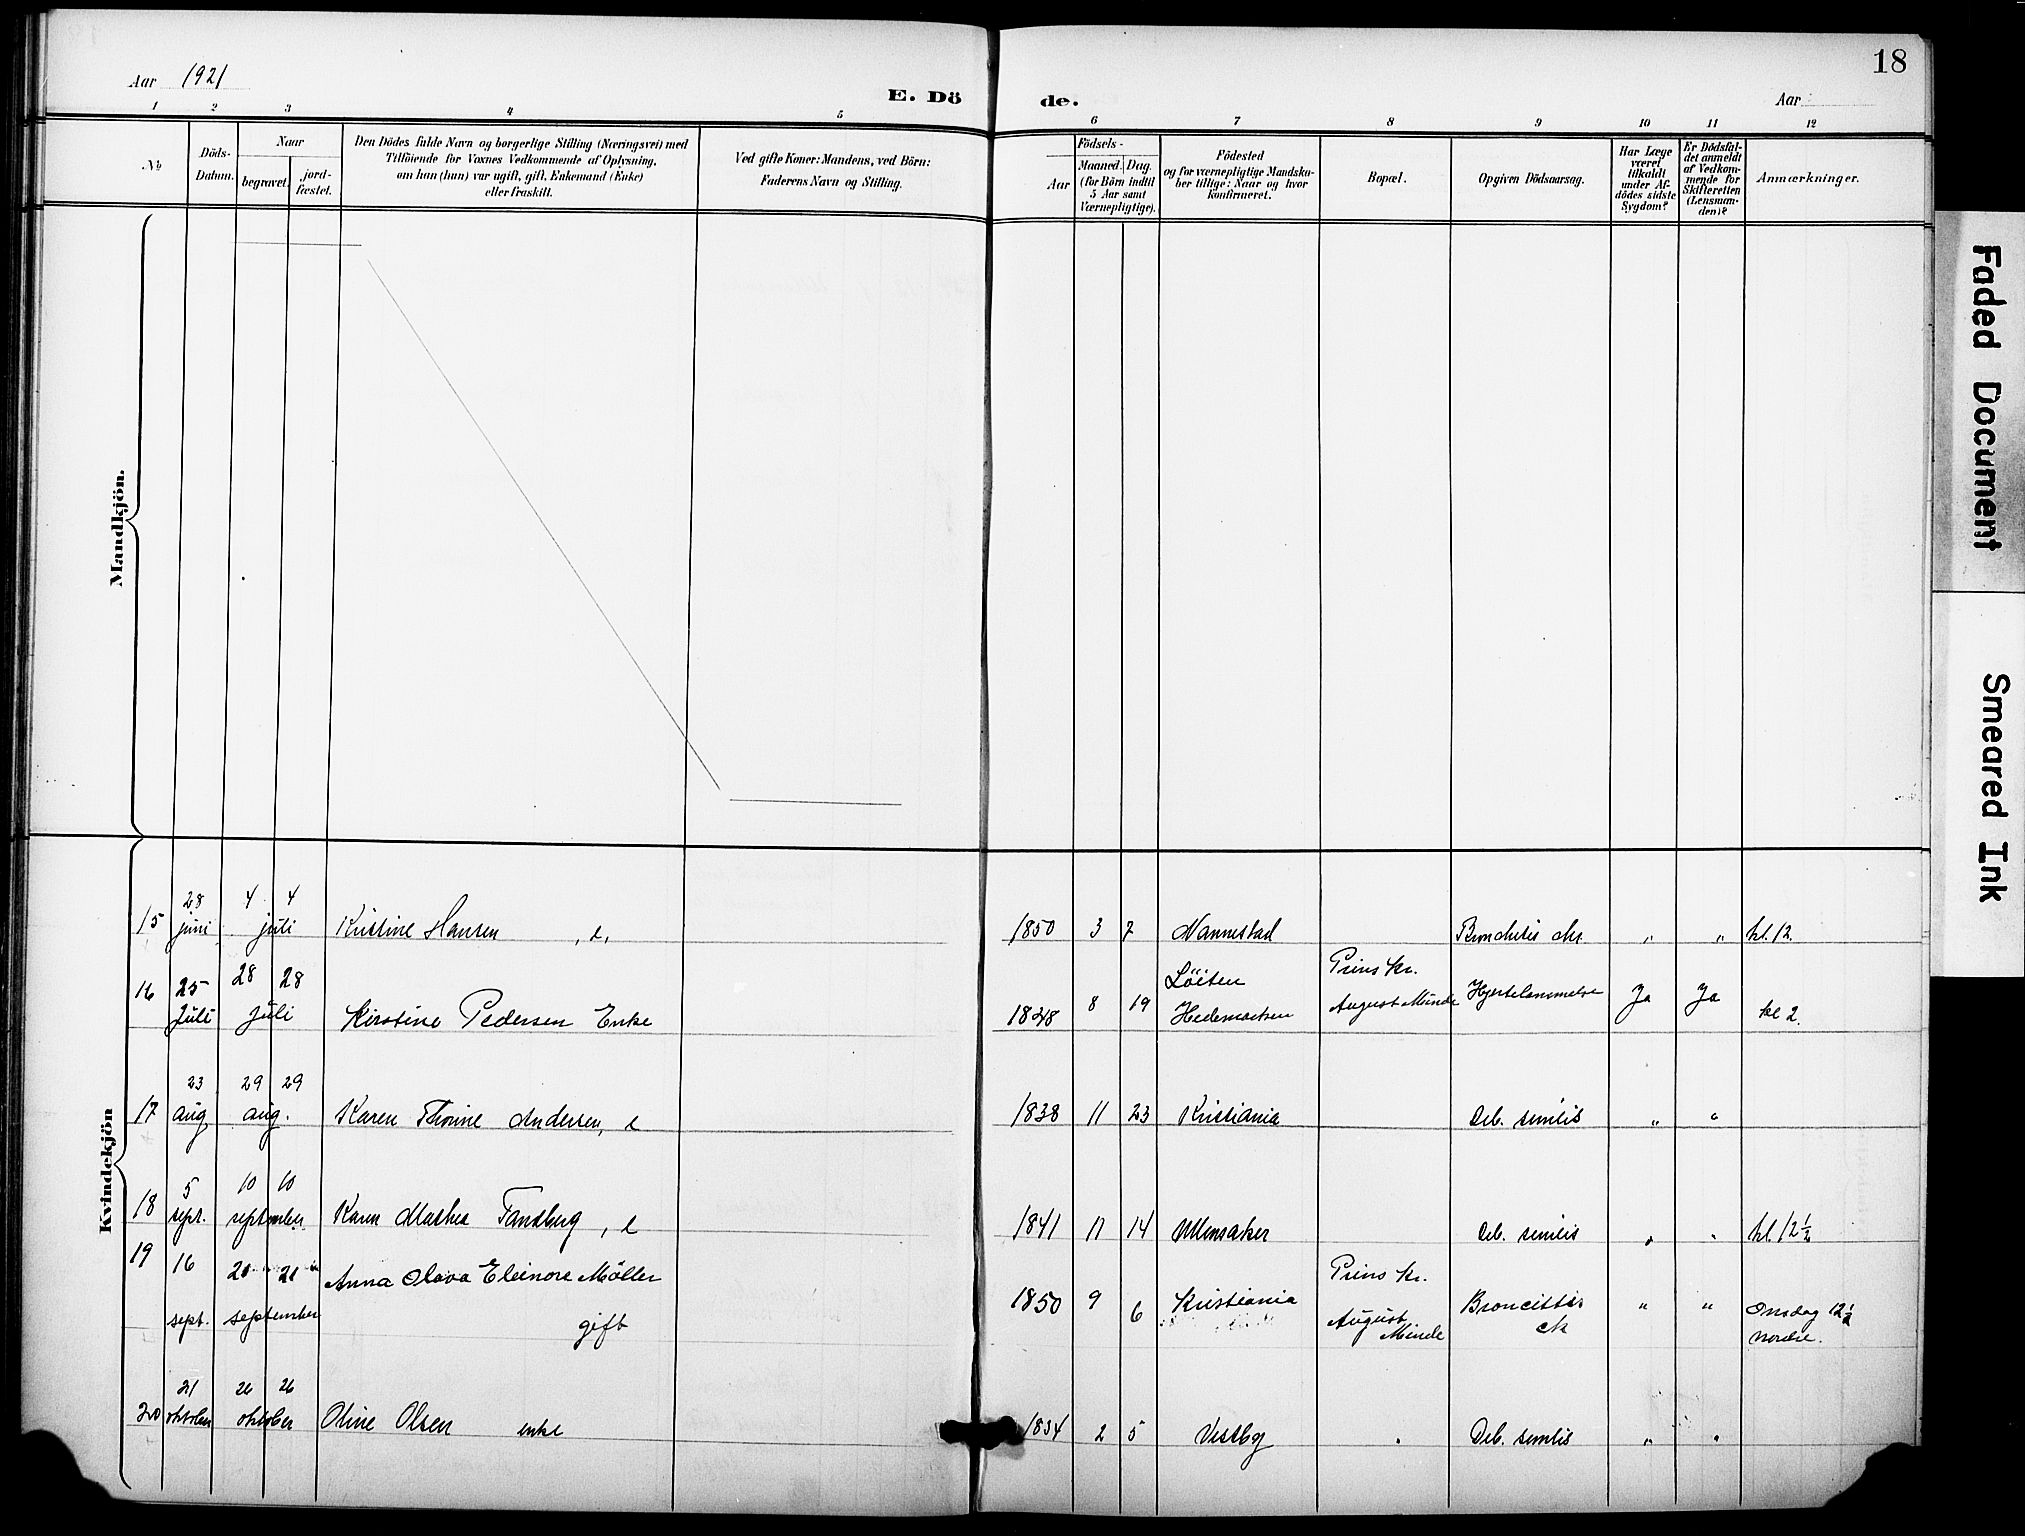 18
Aar 1921
E. Dö
de.
Aar
1 2 3 4 5
6 7 8 9 10 11 12
No
Döds-
Datum.
Naar
begravet.
jord-
fæstet.
Den Dödes fulde Navn og borgerlige Stilling (Næringsvei) med
Tilföiende for Voxnes Vedkommende af Oplysning,
om han (hun) var ugift, gift, Enkemand (Enke)
eller fraskilt.
Ved gifte Koner: Mandens, ved Börn:
Faderens Navn og Stilling.
Födsels-
Aar
Maaned.
Dag.
(for Börn indtil
5 Aar samt
Værnepligtige).
Födested
og for værnepligtige Mandska-
ber tillige: Naar og hvor
konfirmeret.
Bopæl.
Opgiven Dödsaarsag.
Har Læge
været
tilkaldt
under Af-
dödes sidste
Sygdom?
Er Dödsfal-
det anmeldt
af Vedkom-
mende for
Skifteretten
(Lensman-
den)?
Anmærkninger.
Mandkjön.
Kvindekjön
28 4 4
15 juni juli Kristine Hansen , e, 1850 3 7 Nannestad Bronchitis chr. " " kl. 12.
16 25 28 28 Löiten Prins Kr.
Juli Juli Kirstine Pedersen Enke 1848 8 19 Hedemarken August Minde Hjertelammelse Ja Ja kl 2.
23 29 29
17 aug aug. Karen Thorine Andersen, e 1838 11 23 Kristiania Deb. senilis " "
5 10 10
18 sept. september Karen Mathea Tandberg, e 1841 11 14 Ullensaker Deb. senilis " " kl. 12 1/2
19 16 21 21 Anna Olava Eleinore Möller Prins Kr.
sept. september gift 1850 9 6 Kristiania August Minde Broncittis ck " " Onsdag 12 1/2
nordre.
21 26 26
20 oktober oktober Oline Olsen enke 1834 2 5 Vestby " Deb. senilis " "
Faded Document
Smeared Ink